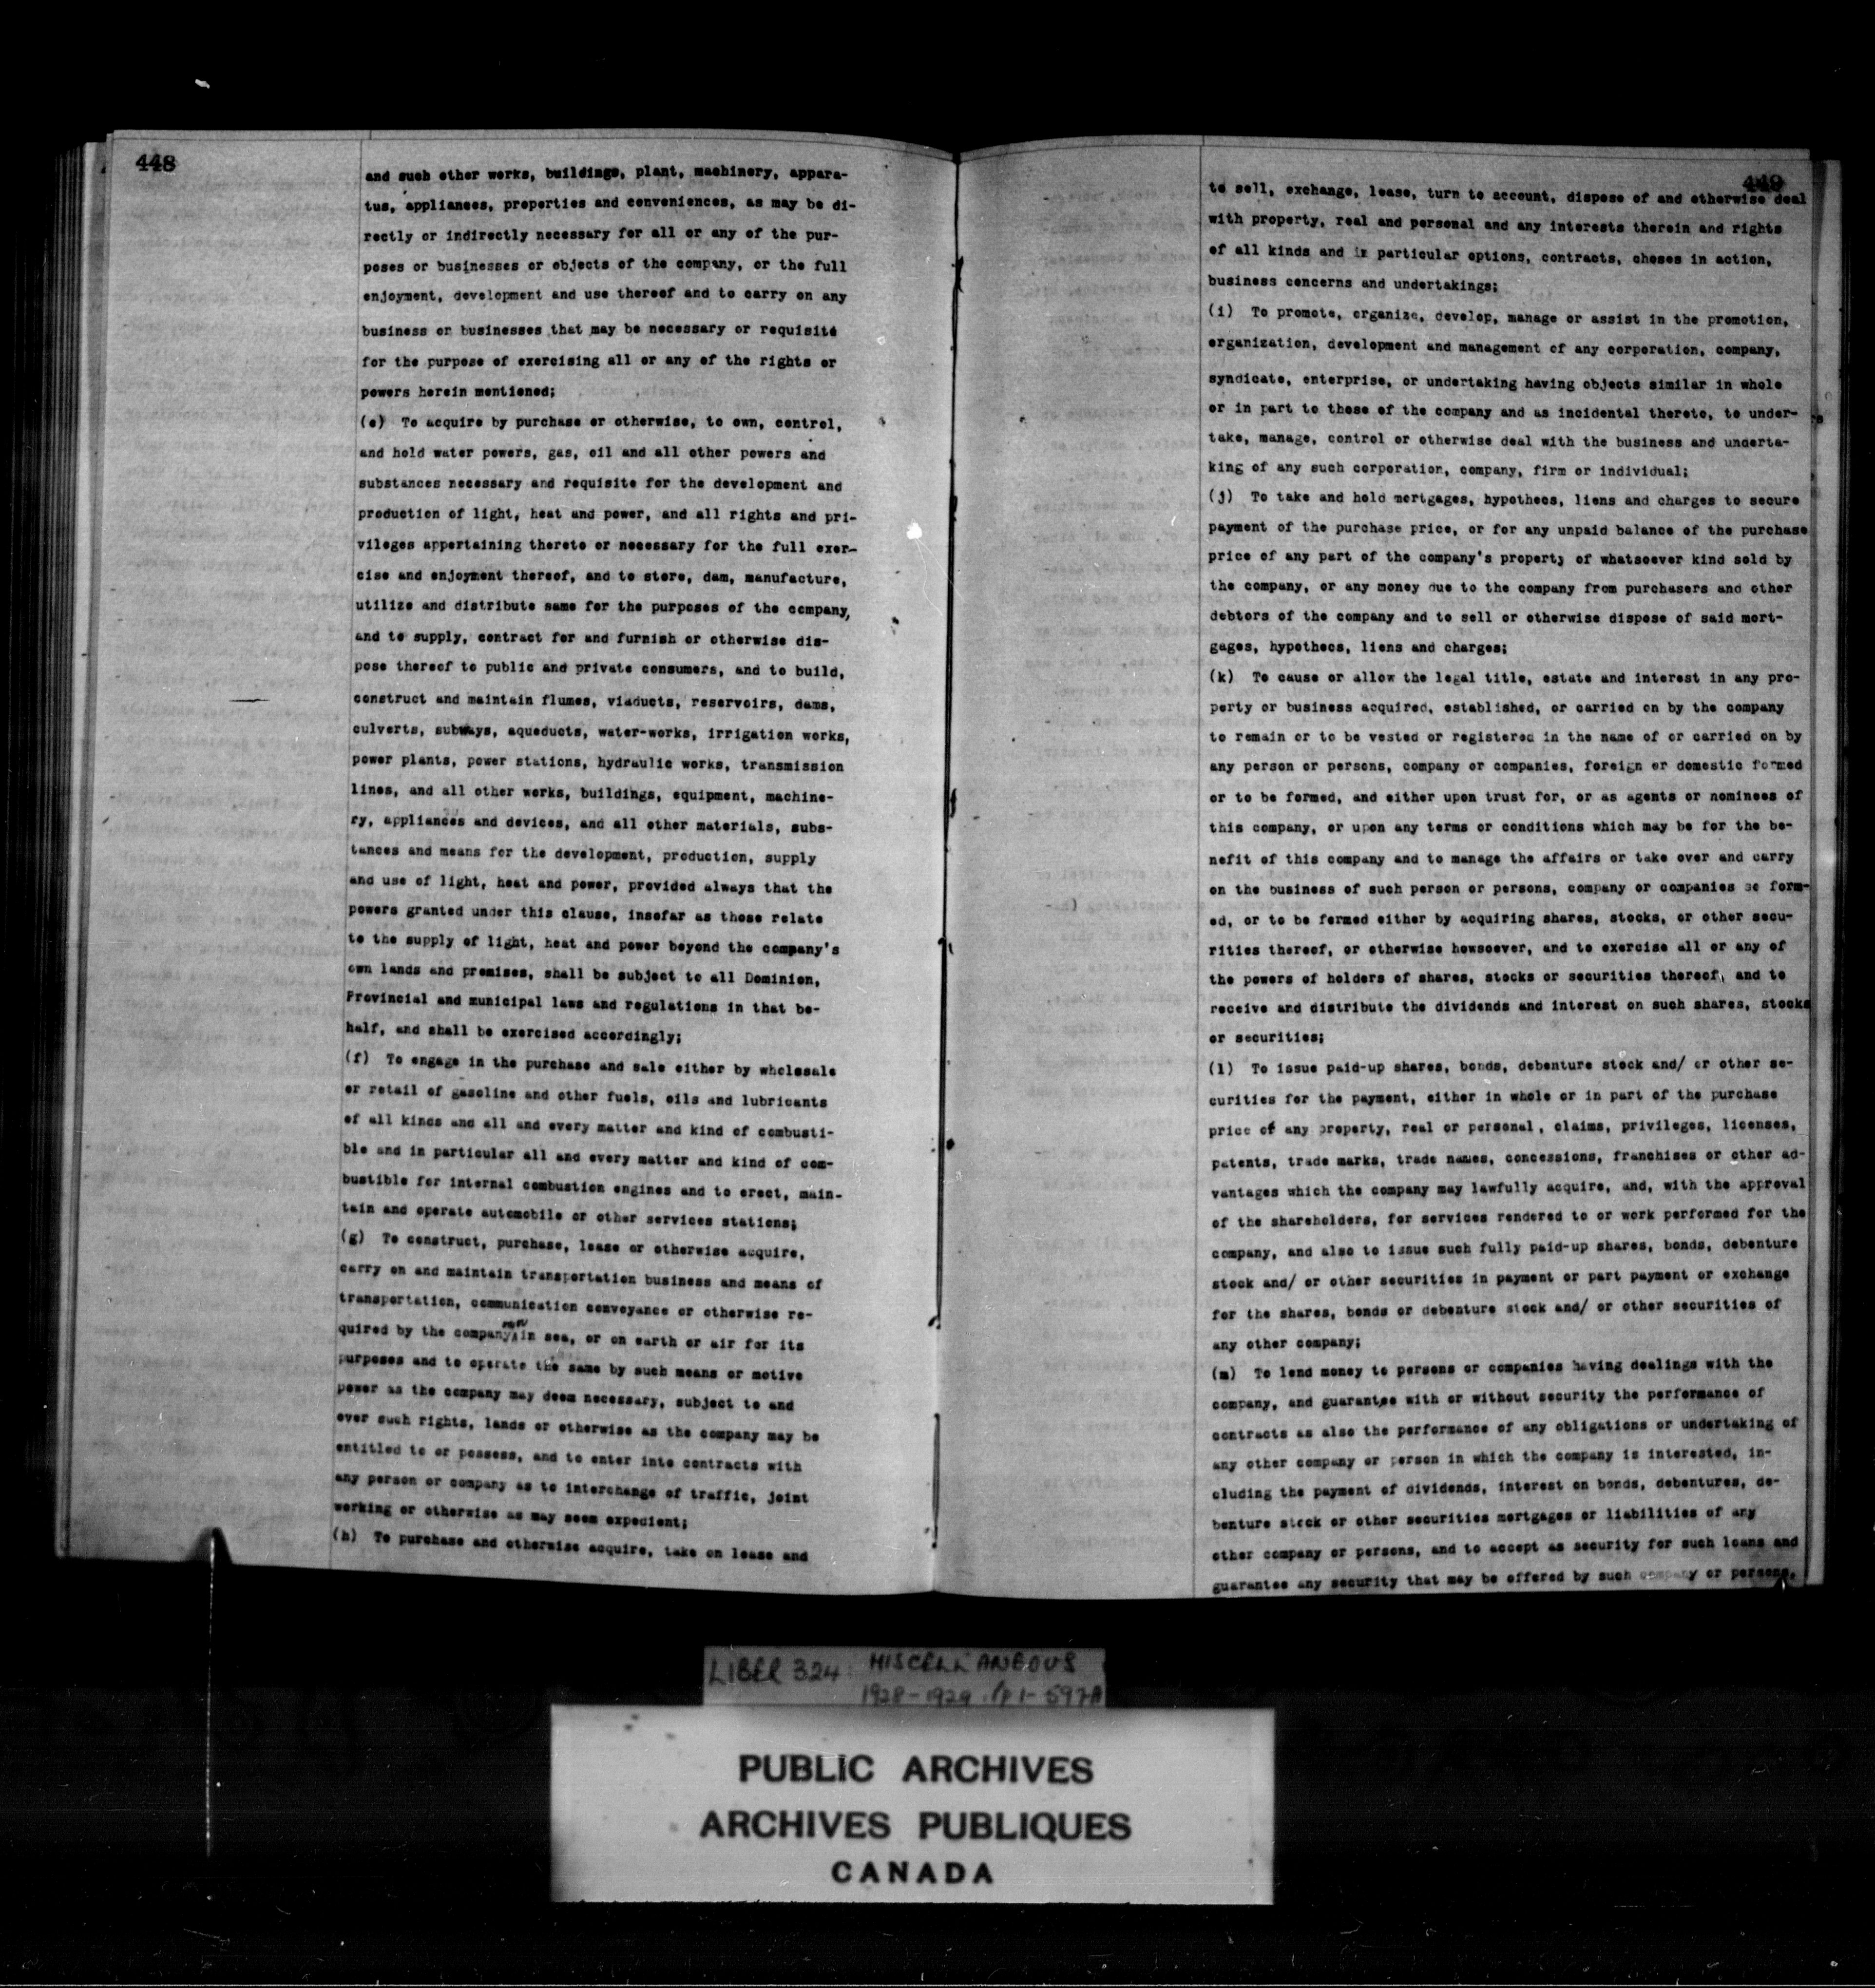 448
and such other works, buildings, plant, machinery, appara-
tus, appliances, properties and conveniences, as may be di-
rectly or indirectly necessary for all or any of the pur-
poses or businesses or objects of the company, or the full
enjoyment, development and use thereof and to carry on any
business or businesses that may be necessary or requisite
for the purpose of exercising all or any of the rights or
powers herein mentioned;
(e) To acquire by purchase or otherwise, to own, control,
and hold water powers, gas, oil and all other powers and
substances necessary and requisite for the development and
production of light, heat and power, and all rights and pri-
vileges appertaining thereto or necessary for the full exer-
cise and enjoyment thereof, and to store, dam, manufacture,
utilize and distribute same for the purposes of the company,
and to supply, contract for and furnish or otherwise dis-
pose thereof to public and private consumers, and to build,
construct and maintain flumes, viaducts, reservoirs, dams,
culverts, subways, aqueducts, water-works, irrigation works,
power plants, power stations, hydraulic works, transmission
lines, and all other works, buildings, equipment, machine-
ry, appliances and devices, and all other materials, subs-
tances and means for the development, production, supply
and use of light, heat and power, provided always that the
powers granted under this clause, insofar as those relate
to the supply of light, heat and power beyond the company's
own lands and premises, shall be subject to all Dominion,
Provincial and municipal laws and regulations in that be-
half, and shall be exercised accordingly;
(f) To engage in the purchase and sale either by wholesale
or retail of gasoline and other fuels, oils and lubricants
of all kinds and all and every matter and kind of combusti-
ble and in particular all and every matter and kind of com-
bustible for internal combustion engines and to erect, main-
tain and operate automobile or other services stations;
(g) To construct, purchase, lease or otherwise acquire,
carry on and maintain transportation business and means of
transportation, communication conveyance or otherwise re-
quired by the company, in sea, or on earth or air for its
purposes and to operate the same by such means or motive
power as the company may deem necessary, subject to and
over such rights, lands or otherwise as the company may be
entitled to or possess, and to enter into contracts with
any person or company as to interchange of traffic, joint
working or otherwise as may seem expedient;
(h) To purchase and otherwise acquire, take on lease and
449
to sell, exchange, lease, turn to account, dispose of and otherwise deal
with property, real and personal and any interests therein and rights
of all kinds and in particular options, contracts, choses in action,
business concerns and undertakings;
(i) To promote, organize, develop, manage or assist in the promotion,
organization, development and management of any corporation, company,
syndicate, enterprise, or undertaking having objects similar in whole
or in part to those of the company and as incidental thereto, to under-
take, manage, control or otherwise deal with the business and underta-
king of any such corporation, company, firm or individual;
(j) To take and hold mortgages, hypothecs, liens and charges to secure
payment of the purchase price, or for any unpaid balance of the purchase
price of any part of the company's property of whatsoever kind sold by
the company, or any money due to the company from purchasers and other
debtors of the company and to sell or otherwise dispose of said mort-
gages, hypothecs, liens and charges;
(k) To cause or allow the legal title, estate and interest in any pro-
perty or business acquired, established, or carried on by the company
to remain or to be vested or registered in the name of or carried on by
any person or persons, company or companies, foreign or domestic formed
or to be formed, and either upon trust for, or as agents or nominees of
this company, or upon any terms or conditions which may be for the be-
nefit of this company and to manage the affairs or take over and carry
on the business of such person or persons, company or companies so form-
ed, or to be formed either by acquiring shares, stocks, or other secu-
rities thereof, or otherwise howsoever, and to exercise all or any of
the powers of holders of shares, stocks or securities thereof, and to
receive and distribute the dividends and interest on such shares, stocks
or securities;
(l) To issue paid-up shares, bonds, debenture stock and/ or other se-
curities for the payment, either in whole or in part of the purchase
price of any property, real or personal, claims, privileges, licenses,
patents, trade marks, trade names, concessions, franchises or other ad-
vantages which the company may lawfully acquire, and, with the approval
of the shareholders, for services rendered to or work performed for the
company, and also to issue such fully paid-up shares, bonds, debenture
stock and/ or other securities in payment or part payment or exchange
for the shares, bonds or debenture stock and/ or other securities of
any other company;
(m) To lend money to persons or companies having dealings with the
company, and guarantee with or without security the performance of
contracts as also the performance of any obligations or undertaking of
any other company or person in which the company is interested, in-
cluding the payment of dividends, interest on bonds, debentures, de-
benture stock or other securities mortgages or liabilities of any
other company or persons, and to accept as security for such loans and
guarantee any security that may be offered by such company or persons,
LIBER 324 MISCELLANEOUS
1928-1929 pp 1-597A
PUBLIC ARCHIVES
ARCHIVES PUBLIQUES
CANADA